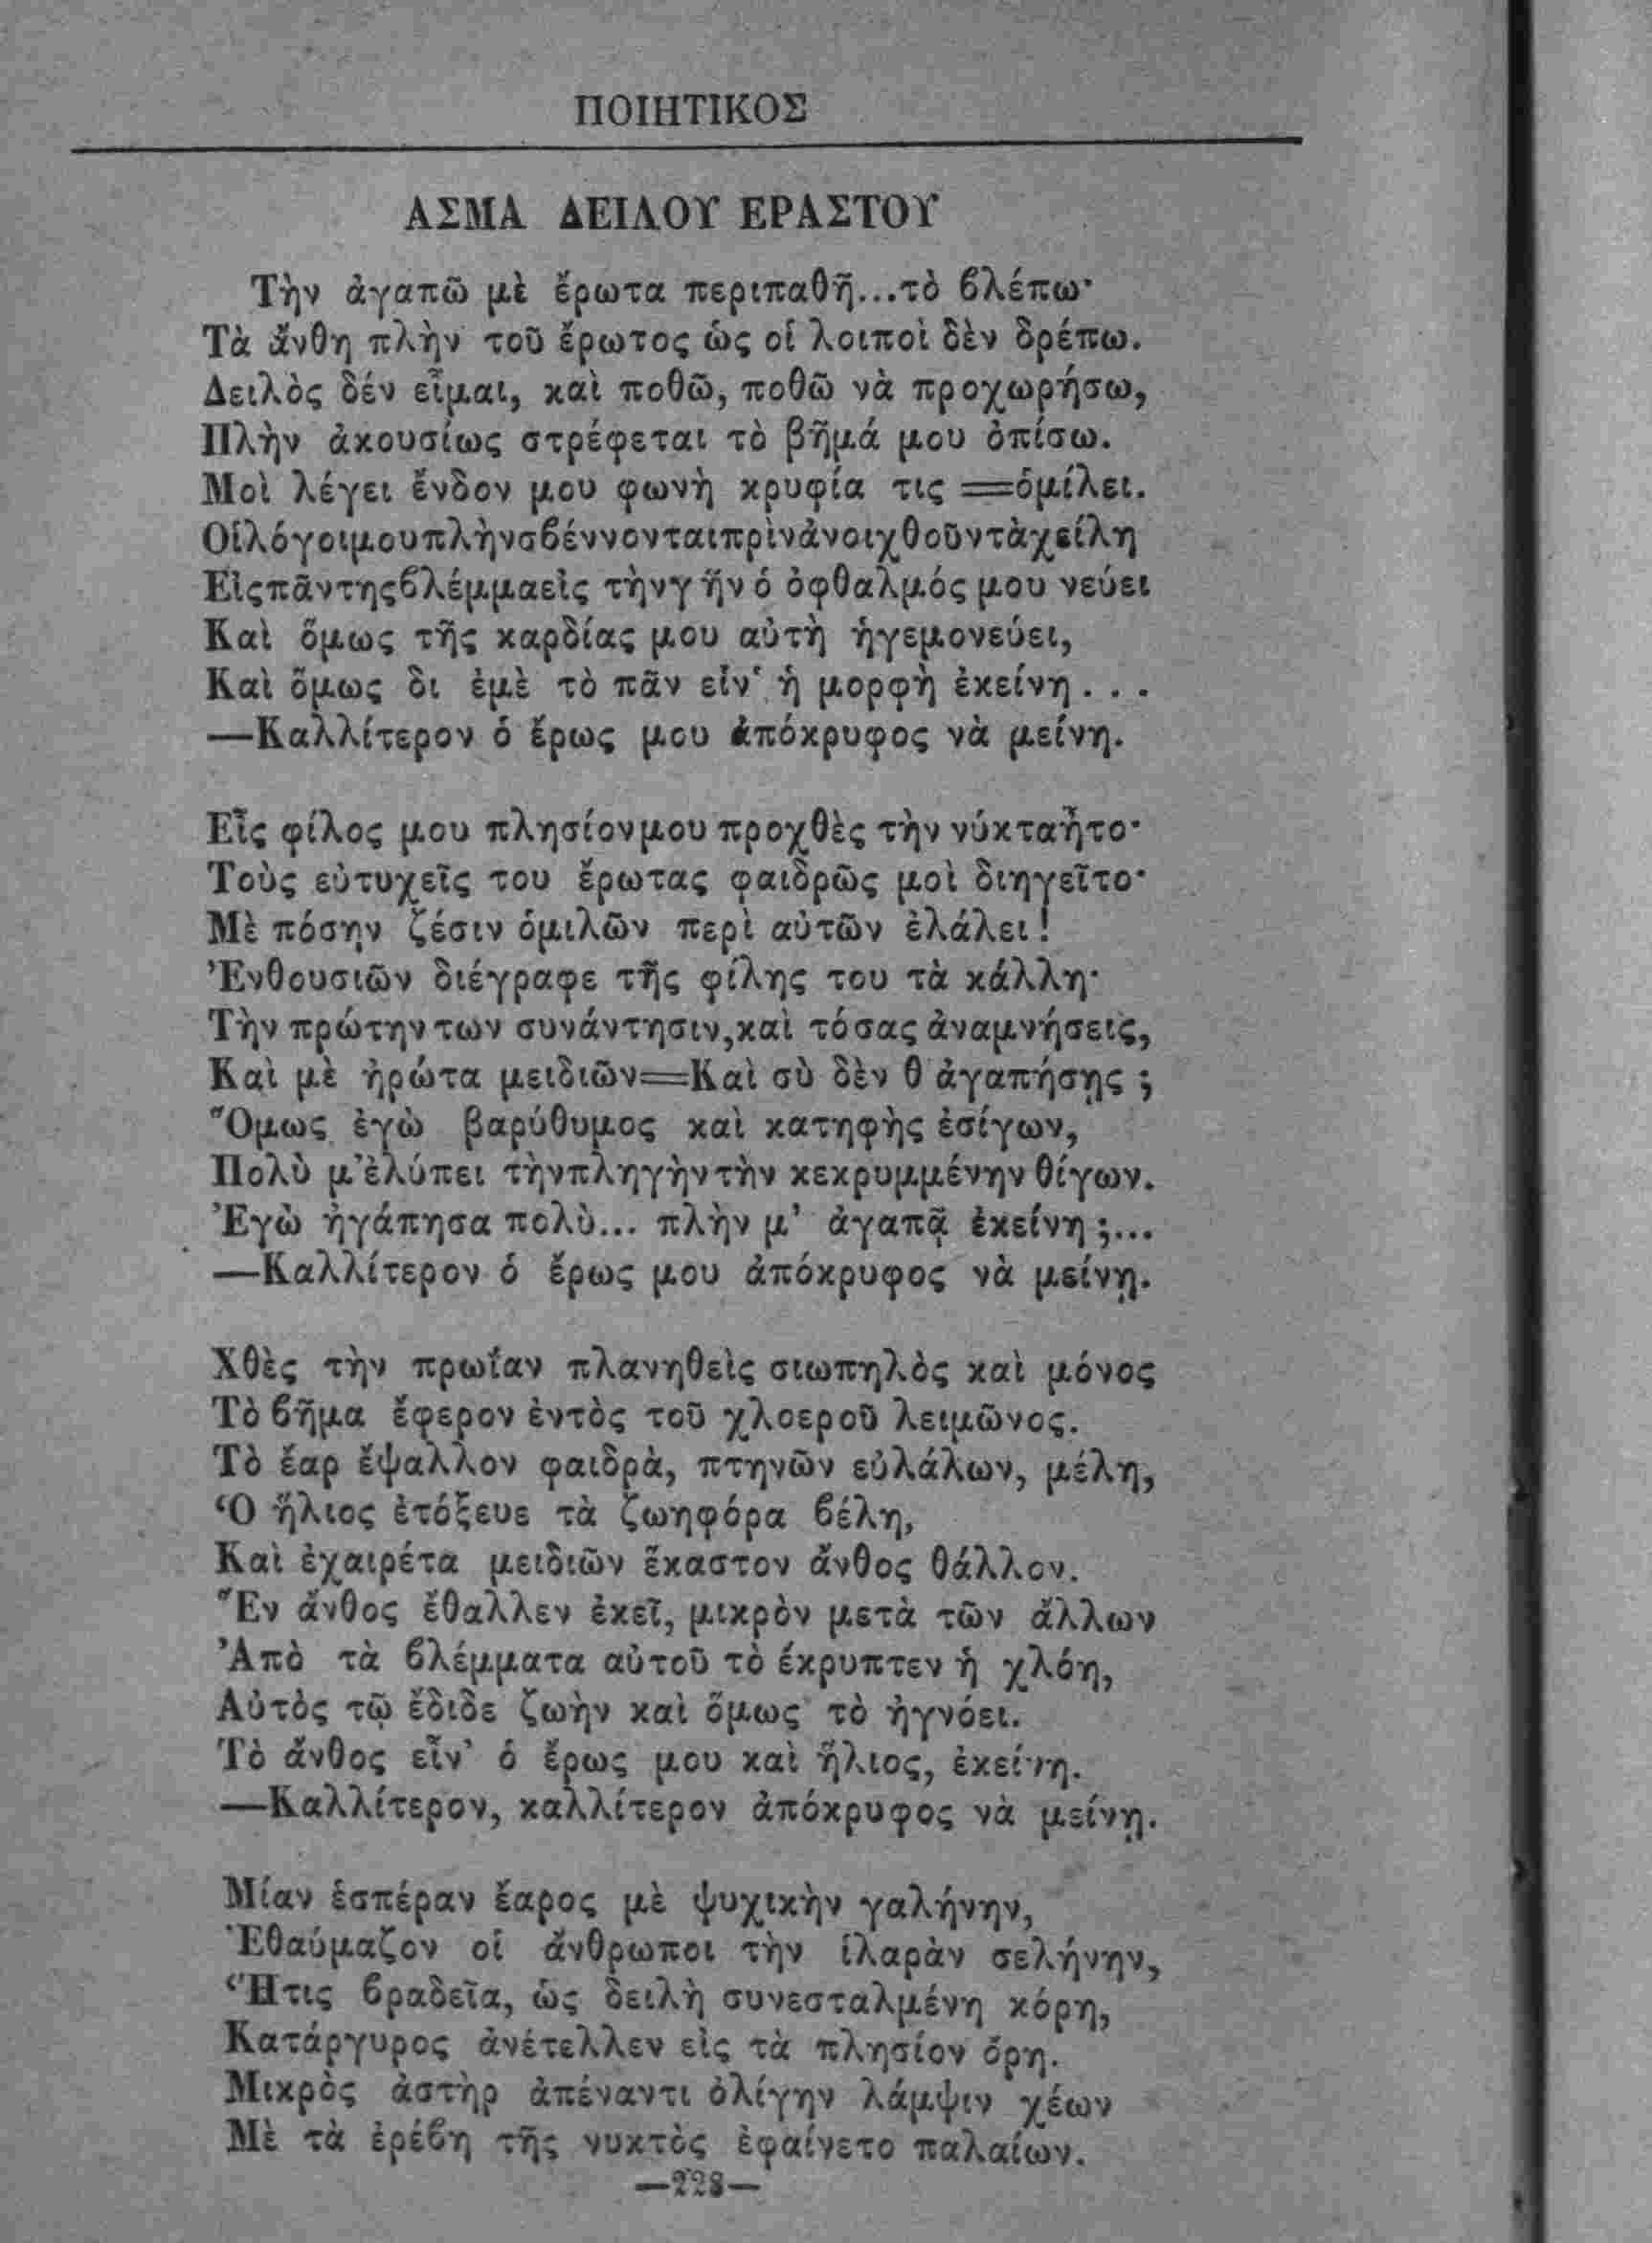 ΠΟΙΗΤΙΚΟΣ
ΑΣΜΑ ΔΕΙΛΟΥ ΕΡΑΣΤΟΥ
Τὴν ἀγαπῶ μὲ ἔρωτα περιπαθῆ...τὸ βλέπω·
Τὰ ἄνθη πλὴν τοῦ ἔρωτος ὡς οἱ λοιποὶ δὲν δρέπω.
Δειλὸς δέν εἶμαι, καὶ ποθῶ, ποθῶ νὰ προχωρήσω,
Πλὴν ἀκουσίως στρέφεται τὸ βῆμά μου ὀπίσω.
Μοὶ λέγει ἔνδον μου φωνὴ κρυφία τις =ὁμίλει.
Οἱλόγοιμουπλὴνσβέννονταιπρὶνἀνοιχθοῦντὰχείλη
Εἰςπᾶντηςβλέμμαεἰς τὴνγῆν ὁ ὀφθαλμός μου νεύει
Καὶ ὅμως τῆς καρδίας μου αὐτὴ ἡγεμονεύει,
Καὶ ὅμως δι ἐμὲ τὸ πᾶν εἶν' ἡ μορφὴ ἐκείνη . . .
—Καλλίτερον ὁ ἔρως μου ἀπόκρυφος νὰ μείνη.
Εἷς φίλος μου πλησίονμου προχθὲς τὴν νύκταἦτο·
Τοὺς εὐτυχεῖς του ἔρωτας φαιδρῶς μοὶ διηγεῖτο·
Μὲ πόσην ζέσιν ὁμιλῶν περὶ αὐτῶν ἐλάλει!
Ἐνθουσιῶν διέγραφε τῆς φίλης του τὰ κάλλη·
Τὴν πρώτην των συνάντησιν,καὶ τόσας ἀναμνήσεις,
Καὶ μὲ ἠρώτα μειδιῶν=Καὶ σὺ δὲν θ ἀγαπήσῃς ;
Ὅμως ἐγὼ βαρύθυμος καὶ κατηφὴς ἐσίγων,
Πολὺ μ'ἐλύπει τὴνπληγὴντὴν κεκρυμμένην θίγων.
Ἐγὼ ἠγάπησα πολὺ... πλὴν μ' ἀγαπᾷ ἐκείνη ;...
—Καλλίτερον ὁ ἔρως μου ἀπόκρυφος νὰ μείνῃ.
Χθὲς τὴν πρωΐαν πλανηθεὶς σιωπηλὸς καὶ μόνος
Τὸ βῆμα ἔφερον ἐντὸς τοῦ χλοεροῦ λειμῶνος.
Τὸ ἔαρ ἔψαλλον φαιδρὰ, πτηνῶν εὐλάλων, μέλη,
Ὁ ἥλιος ἐτόξευε τὰ ζωηφόρα βέλη,
Καὶ ἐχαιρέτα μειδιῶν ἕκαστον ἄνθος θάλλον.
Ἓν ἄνθος ἔθαλλεν ἐκεῖ, μικρὸν μετὰ τῶν ἄλλων
Ἀπὸ τὰ βλέμματα αὐτοῦ τὸ έκρυπτεν ἡ χλόη,
Αὐτὸς τῷ ἔδιδε ζωὴν καὶ ὅμως τὸ ἠγνόει.
Τὸ ἄνθος εἶν' ὁ ἔρως μου καὶ ἥλιος, ἐκείνη.
—Καλλίτερον, καλλίτερον ἀπόκρυφος νὰ μείνῃ.
Μίαν ἑσπέραν ἔαρος μὲ ψυχικὴν γαλήνην,
Ἐθαύμαζον οἱ ἄνθρωποι τὴν ἱλαρὰν σελήνην,
Ἥτις βραδεῖα, ὡς δειλὴ συνεσταλμένη κόρη,
Κατάργυρος ἀνέτελλεν εἰς τὰ πλησίον ὄρη.
Μικρὸς ἀστὴρ ἀπέναντι ὀλίγην λάμψιν χέων
Μὲ τὰ ἐρέβη τῆς νυκτὸς ἐφαίνετο παλαίων.
—223—